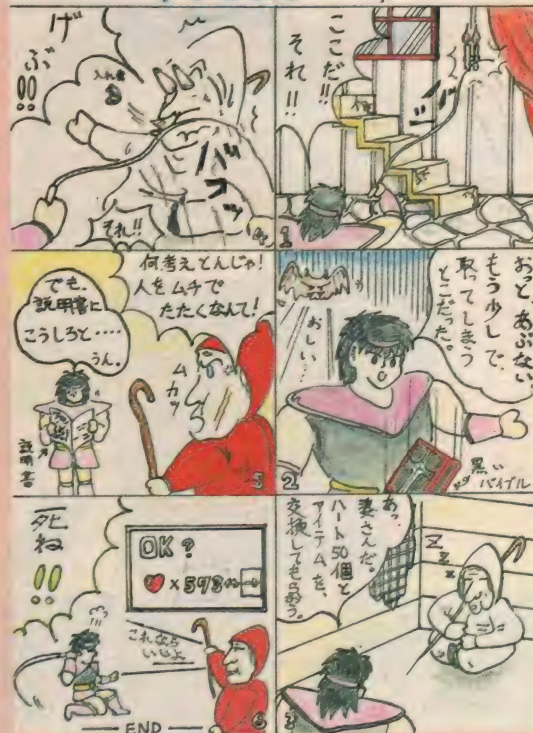 ここだ!!
それ!!
1
おっと あぶない。
もう少しで、
取ってしまう
とこだった。
おしい…
黒い
バイブル
2
あっ、
婆さんだ。
ハート50個と
アイテムを、
交換してもらおう。
Z
Z
Z
3
げぶ!!
入れ歯
バコッ
それ!!
4
何考えとんじゃ!
人をムチで
たたくなんて!
ムカッ
でも、
説明書に
こうしろと……
うん。
説明書
5
OK?
♥×573
これなら
いいよ
死ね!!
6
END